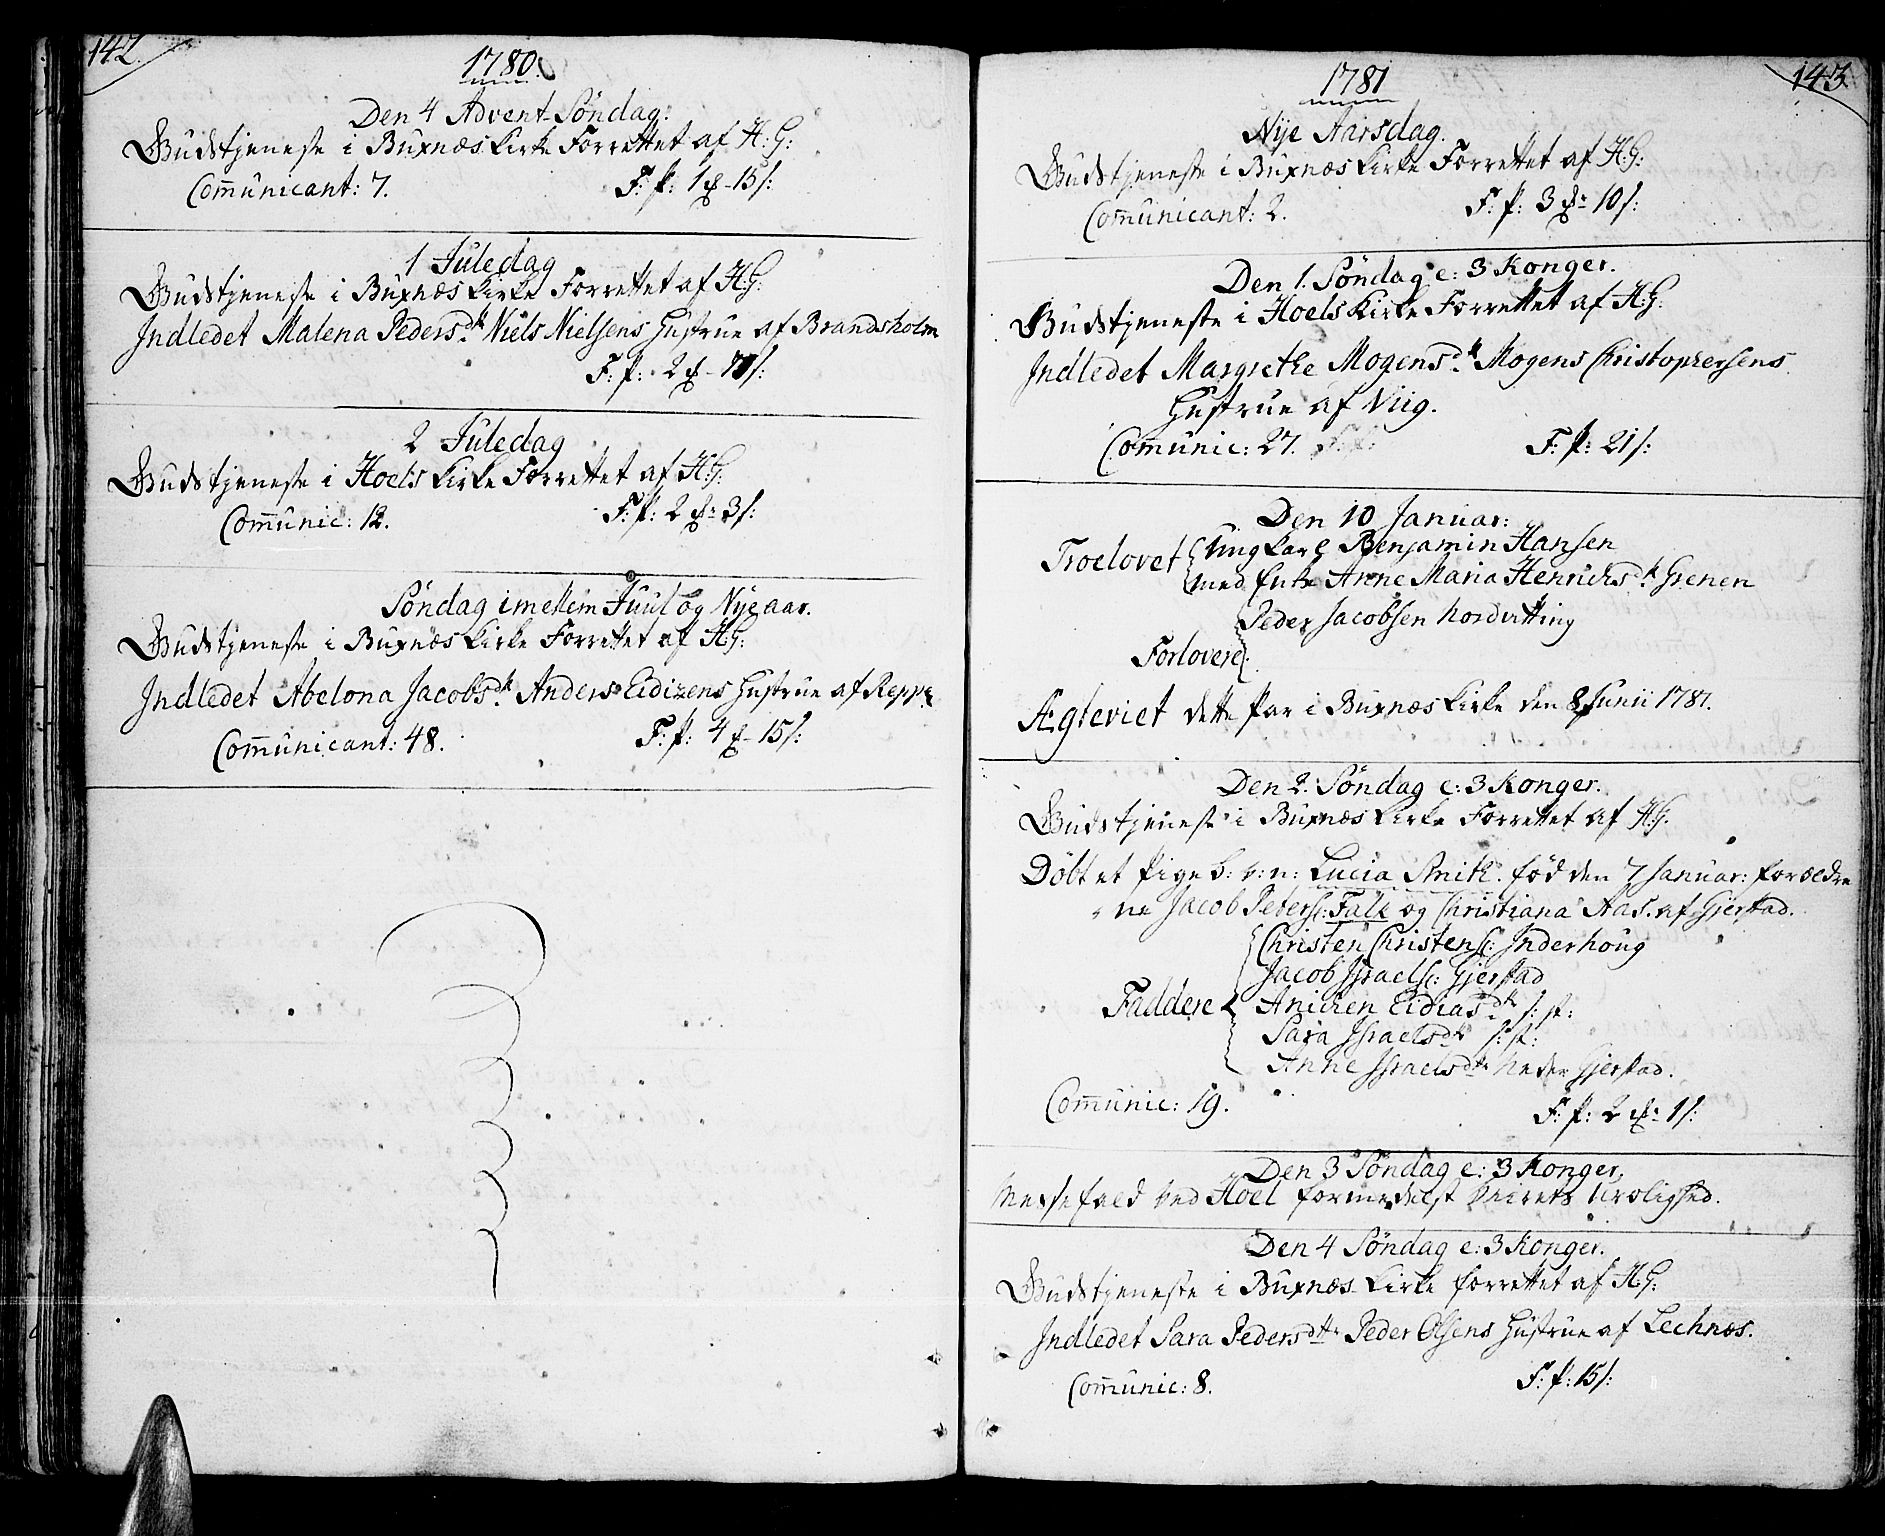 142.
1780.
Den 4 Advent-Söndag:
Gudstjeneste i Buxnæs Kirke Forrettet af H: G:
Com̄unicant: 7. F: p: 1 # - 15 s:
1 Juledag
Gudstjeneste i Buxnæs Kirke Forrettet af H:G:
Indledet Malena Pedersdtr. Niels Nielsens Hustrue af Brandsholm
F: p: 2 #
2 Juledag
Gudstjeneste i Hoels Kirke Forrettet af H:G:
Com̄unic: 12. F: p: 2 # 3 s:
Söndag imellem Juul og Nyeaar.
Gudstjeneste i Buxnæs Kirke Forrettet af H:G:
Indledet Abelona Jacobsdtr. Anders Eidizens Hustrue af Reppe
Com̄unicant: 48. F: p: 4 # - 15 s:
143
1781
Nye Aarsdag.
Gudstjeneste i Buxnæs Kirke Forrettet af H:G:
Com̄unicant: 2. F: p: 3 # 10 s:
Den 1. Söndag e: 3 Konger.
Gudstjeneste i Hoels Kirke Forrettet af H:G:
Indledet Margrethe Mogensdtr. Mogens Christophersens
Hustrue af Viig.
Com̄unic: 27. F: p: 21 s:
Den 10 Januar:
Troelovet Ung karl Benjamin Hansen
med Enke Anne Maria Henrichsdtr. Grenen
Peder Jacobsen Nordvitting
Forlovere
Ægteviet dette Par i Buxnæs Kirke den 8 Junii 1781.
Den 2. Söndag e: 3 Konger.
Gudstjeneste i Buxnæs Kirke Forrettet af H:G.
Döbt et Pige b: v: n: Lucia Smith. föd den 7 Januar: forældre
ne Jacob Peders: Falk og Christiana Aas. af Gjerstad.
Christen Christens: Inderhoug
Jacob Israels: Gjerstad
Faddere Anichen Eidiasdtr s: st:
Sara Israelsdtr s: st:
Anne Israelsdtr Neder Gjerstad.
Com̄unic: 19. F: p: 2 # 1 s:
Den 3 Söndag e: 3 Konger.
Messefald ved Hoel formedelst Veirets Urolighed.
Den 4 Söndag e: 3 Konger.
Gudstjeneste i Buxnæs Kirke forrettet af H:G:
Indledet Sara Pedersdtr. Peder Olsens Hustrue af Lechnæs.
Com̄unic: 8. F: p: 15 s: